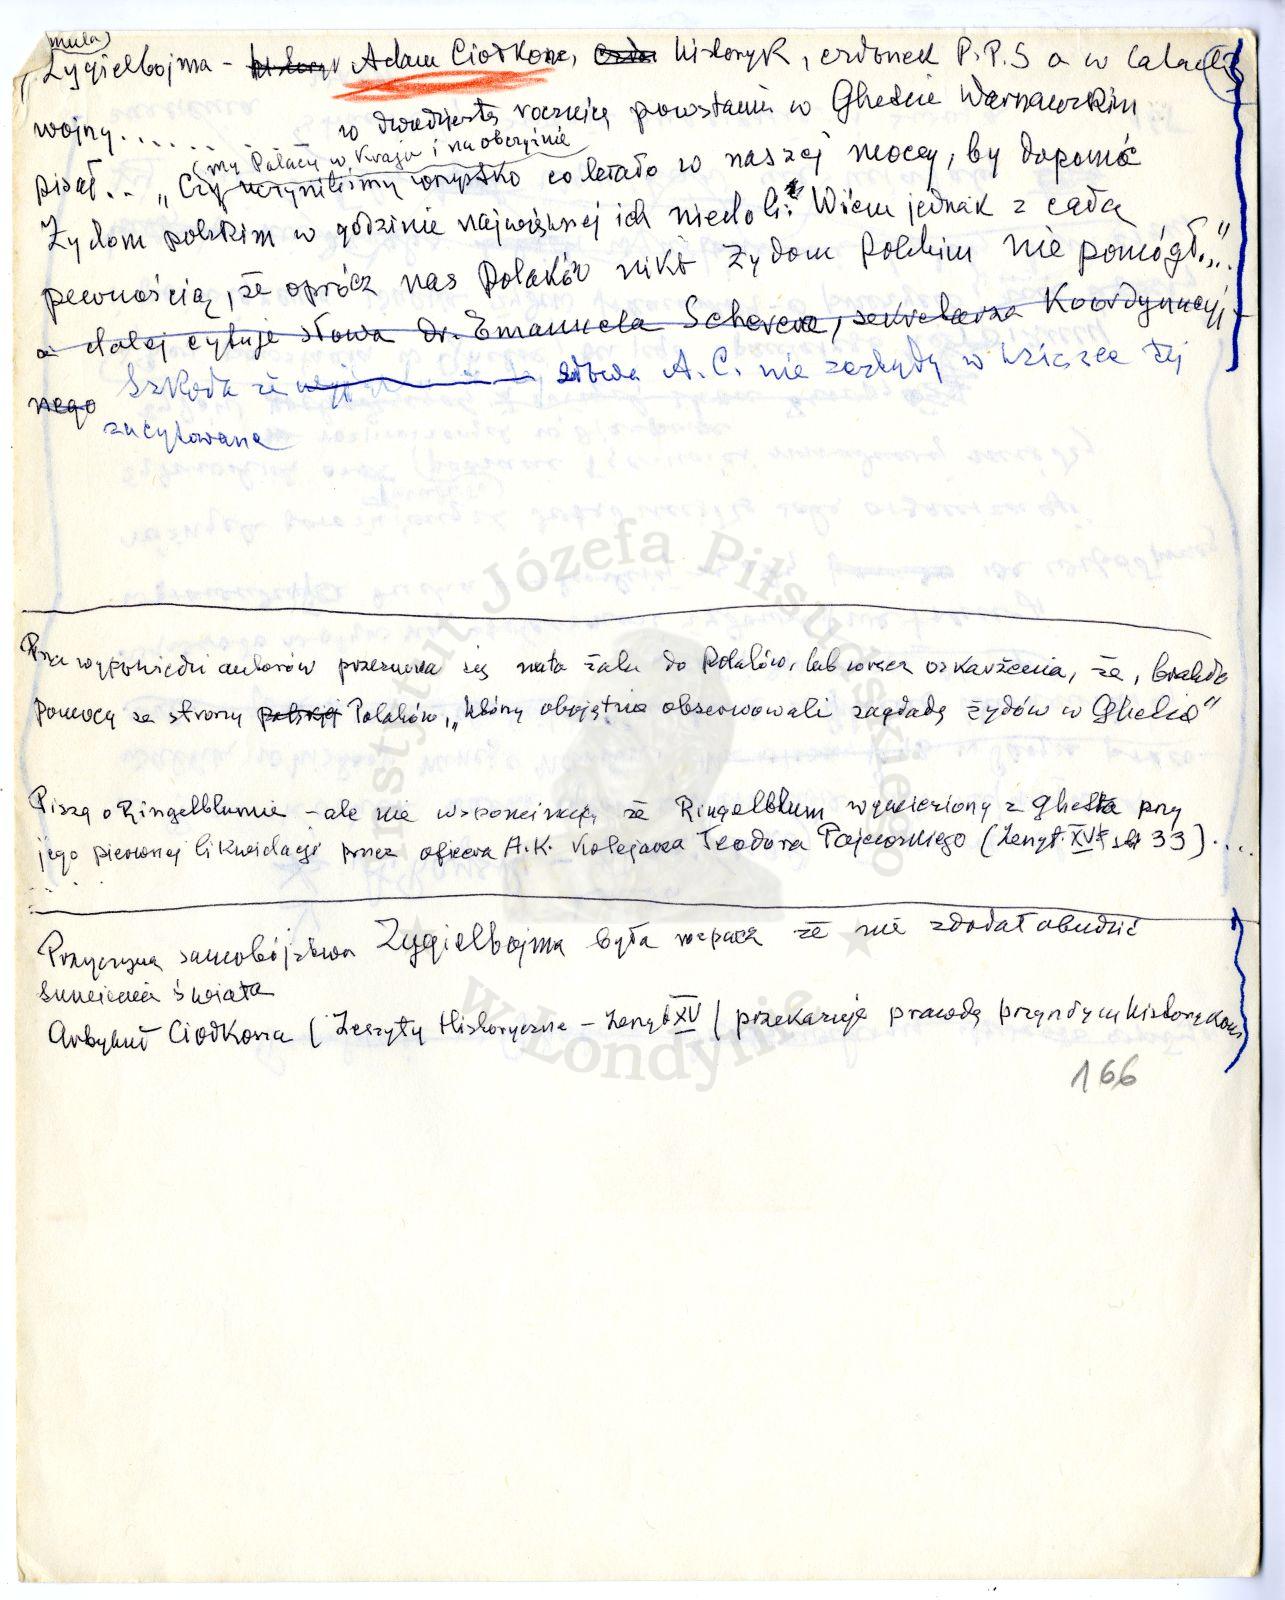 (mula)
Zygielbojma - Adam Ciołkosz, historyk, członek P.P.S a w latach
wojny...... w dwudziestą rocznicę powstania w Ghetcie Warszawskim
(my Polacy w Kraju i na obczyźnie
pisał.. "Czy uczyniliśmy wszystko co leżało w naszej mocy, by dopomóc
Żydom polskim w godzinie najwyższej ich niedoli? Wiem jednak z całą
pewnością, że oprócz nas Polaków nikt Żydom Polskim nie pomógł..."
a dalej cytuje słowa dr. Emanuela Scherera, sekretarza Koordynacyj
nego
Szkoda że słowa A.C. nie zostały w książce tej
zacytowane
wypowiedzi autorów przesuwa się nuta żalu do Polaków, lub wręcz oskarżenia, że, brakło
pomocy ze strony polskiej Polaków, "którzy obojętnie obserwowali zagładę żydów w Ghetcie"
Piszą o Ringelblumie - ale nie wspominają że Ringelblum wywieziony z ghetta przy
jego pierwszej likwidacji przez oficera A.K. kolejarza Teodora Pajewskiego (Zeszyt XV str 33)....
Przyczyną samobójstwa Zygielbojma była rozpacz że nie zdołał obudzić
sumienia świata
Artykuł Ciołkosza (Zeszyty Historyczne - Zeszyt XV) przekazuje prawdę przyszłym historykom
166
Instytut Józefa Piłsudskiego
w Londynie